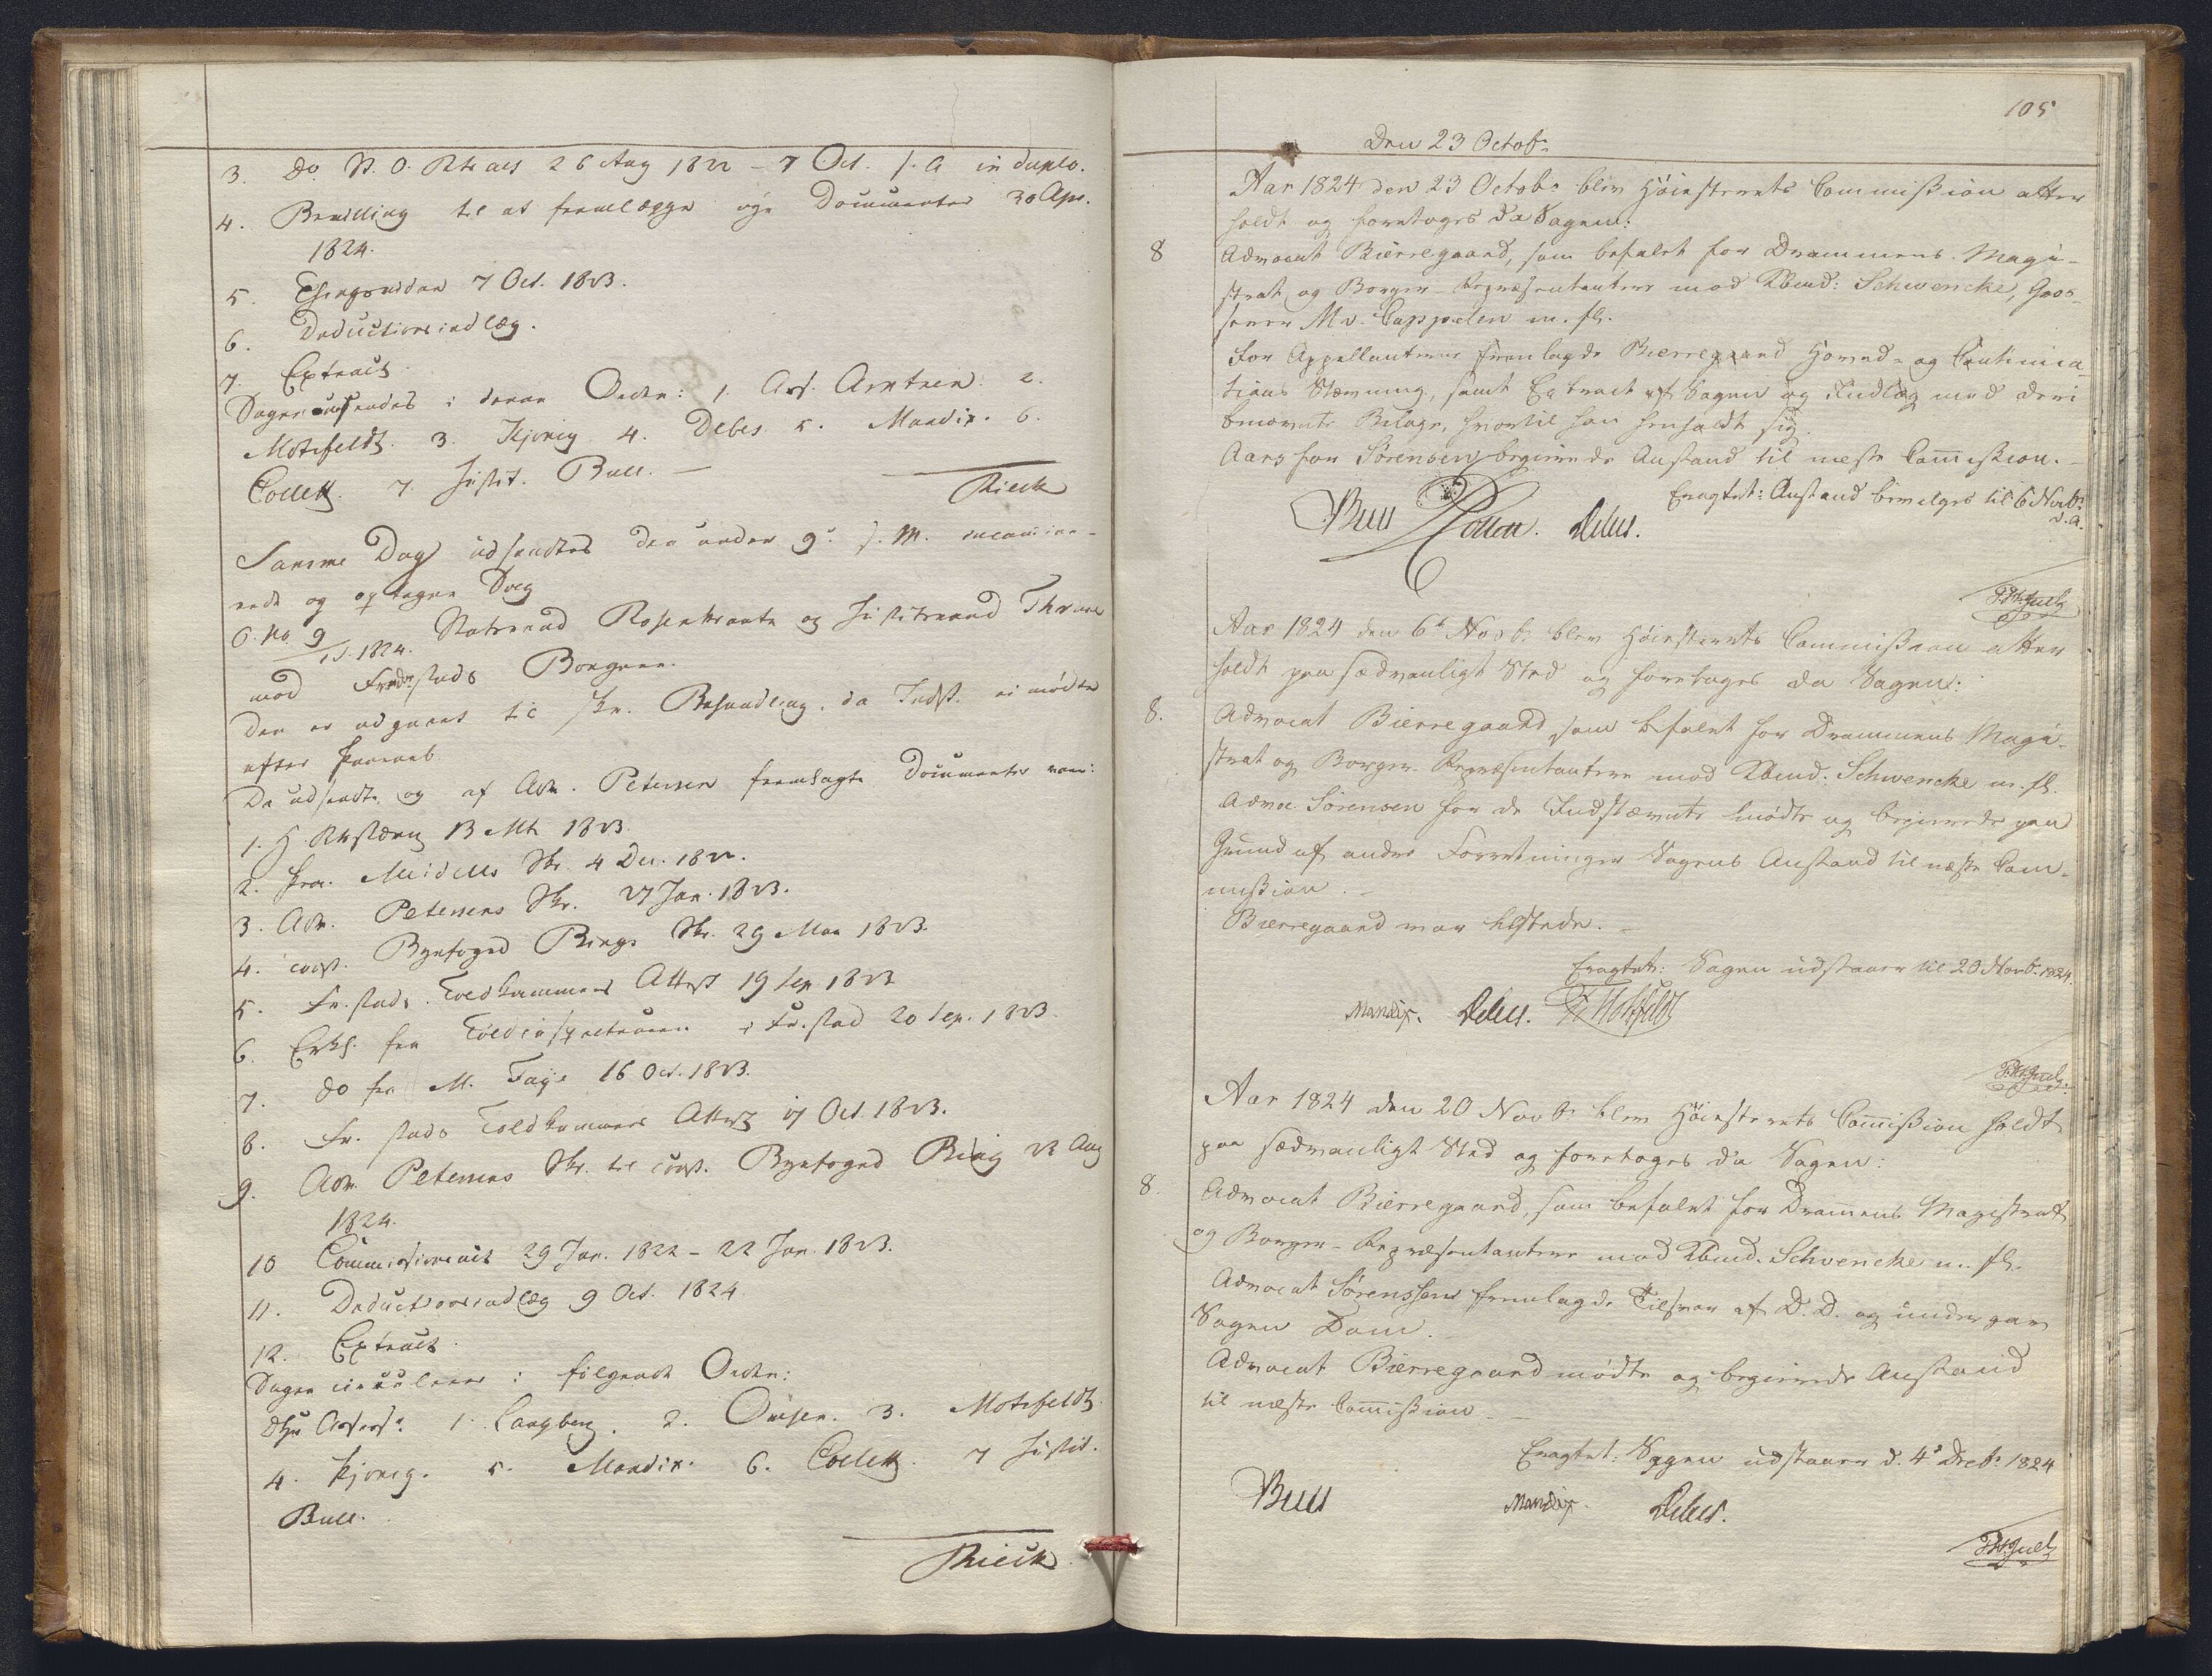 3. do. N. O. Rets acs 26 Aug 1822 - 7 Oct. s. A in duplo.
4. Bevilling til at fremlægge nye Documenter 30 Apr.
1824.
5. Thingsvidne 7 Oct. 1823.
6. Deductionsindlæg.
7. Extract.
Sagen udsendes i denne Orden: 1. Ass. Arntzen. 2.
Motzfeldt. 3. Kjønig 4. Debes. 5. Mandix. 6.
Collett. 7. Justit. Bull. —
Rieck
Samme Dag udsendtes den under 9de s. M. incamine-
rede og optagne Sag
O. No. 9 / 1824. Statsraad Rosenkrantz og Justitsraad Thrane
mod Fredrstads Borgere.
den er udgaaet til skr. Behandling, da Indst. ei mødte
efter Paaraab
De udsendte og af Adv. Petersen fremlagte Documenter vare:
1. H. Rtsstævng 13 Mts 1823.
2. Proc. Meidells Skr. 4 Dec. 1822.
3. Adv. Petersens Skr. 27 Jan. 1823.
4. const. Byefoged Rings Skr. 29 Mai 1823.
5. Fr. stads Toldkammers Attest 19 Sep 1823
6. Erkl. fra Toldinspecteuren i Fr. stad 20 Sep. 1823.
7. do fra M. Faye 16 Oct. 1823.
8. Fr. stads Toldkammers Attest 17 Oct. 1823.
9. Adv. Petersens Skr. til const. Byefoged Ring 23 Aug
1824.
10 Commissionsact 29 Jan. 1822 - 22 Jan. 1823.
11. Deductionsindlæg 9 Oct. 1824.
12. Extract.
Sagen circulerer i følgende Orden:
Hr Assess. 1. Langberg. 2. Omsen. 3. Motzfeldt.
4. Kjønig. 5. Mandix. 6. Collett. 7 Justit.
Bull.
Rieck
105
Den 23 Octobr
Aar 1824 den 23 Octobr blev Høiesteretts Commission atter
holdt og foretoges da Sagen:
8 Advocat Bierregaard, som befalet for Drammens Magi-
strat og Borger-Repræsentantere mod Kbmd: Schwencke, Gros-
serer Mv. Cappelen m. fl.
For Appellanterne fremlagde Bierregaard Hoved- og Continua-
tions Stævning, samt Extract af Sagen og Indlæg med deri
benævnte Bilage, hvortil han henholdt sig.
Aars for Sørensen begierede Anstand til næste Commission. —
Eragtet: Anstand bevilges til 6 Novbr
d. A.
Bull Collett. Debes.
F. W. Juell
Aar 1824 den 6te Novbr blev Høiesteretts Commission atter
holdt paa sædvanligt Sted og foretoges da Sagen:
8. Advocat Bierregaard som befalet for Drammens Magi-
strat og Borger-Repræsentantere mod Kbmd: Schwencke m. fl.
Advoc. Sørensen for de Indstævnte mødte og begierede paa
Grund af andre Forretninger Sagens Anstand til næste Com-
mission. —
Bierregaard var tilstede. —
Eragtet: Sagen udstaaer til 20 Novb. 1824.
Mandix. Debes. F. Motzfeldt
F. W. Juell.
Aar 1824 den 20 Novbr blev Høiesteretts Commission holdt
paa sædvanligt Sted og foretoges da Sagen:
8. Advocat Bierregaard, som befalet for Drammens Magistrat
og Borger-Repræsentantere mod Kbmd. Schwencke m. fl.
Advocat Sørenssen fremlagde Tilsvar af D. D. og undergav
Sagen Dom. —
Advocat Bierregaard mødte og begierede Anstand
til næste Commission. —
Eragtet: Sagen udstaaer d. 4de Decbr 1824
Bull Mandix. Debes.
F. W. Juell